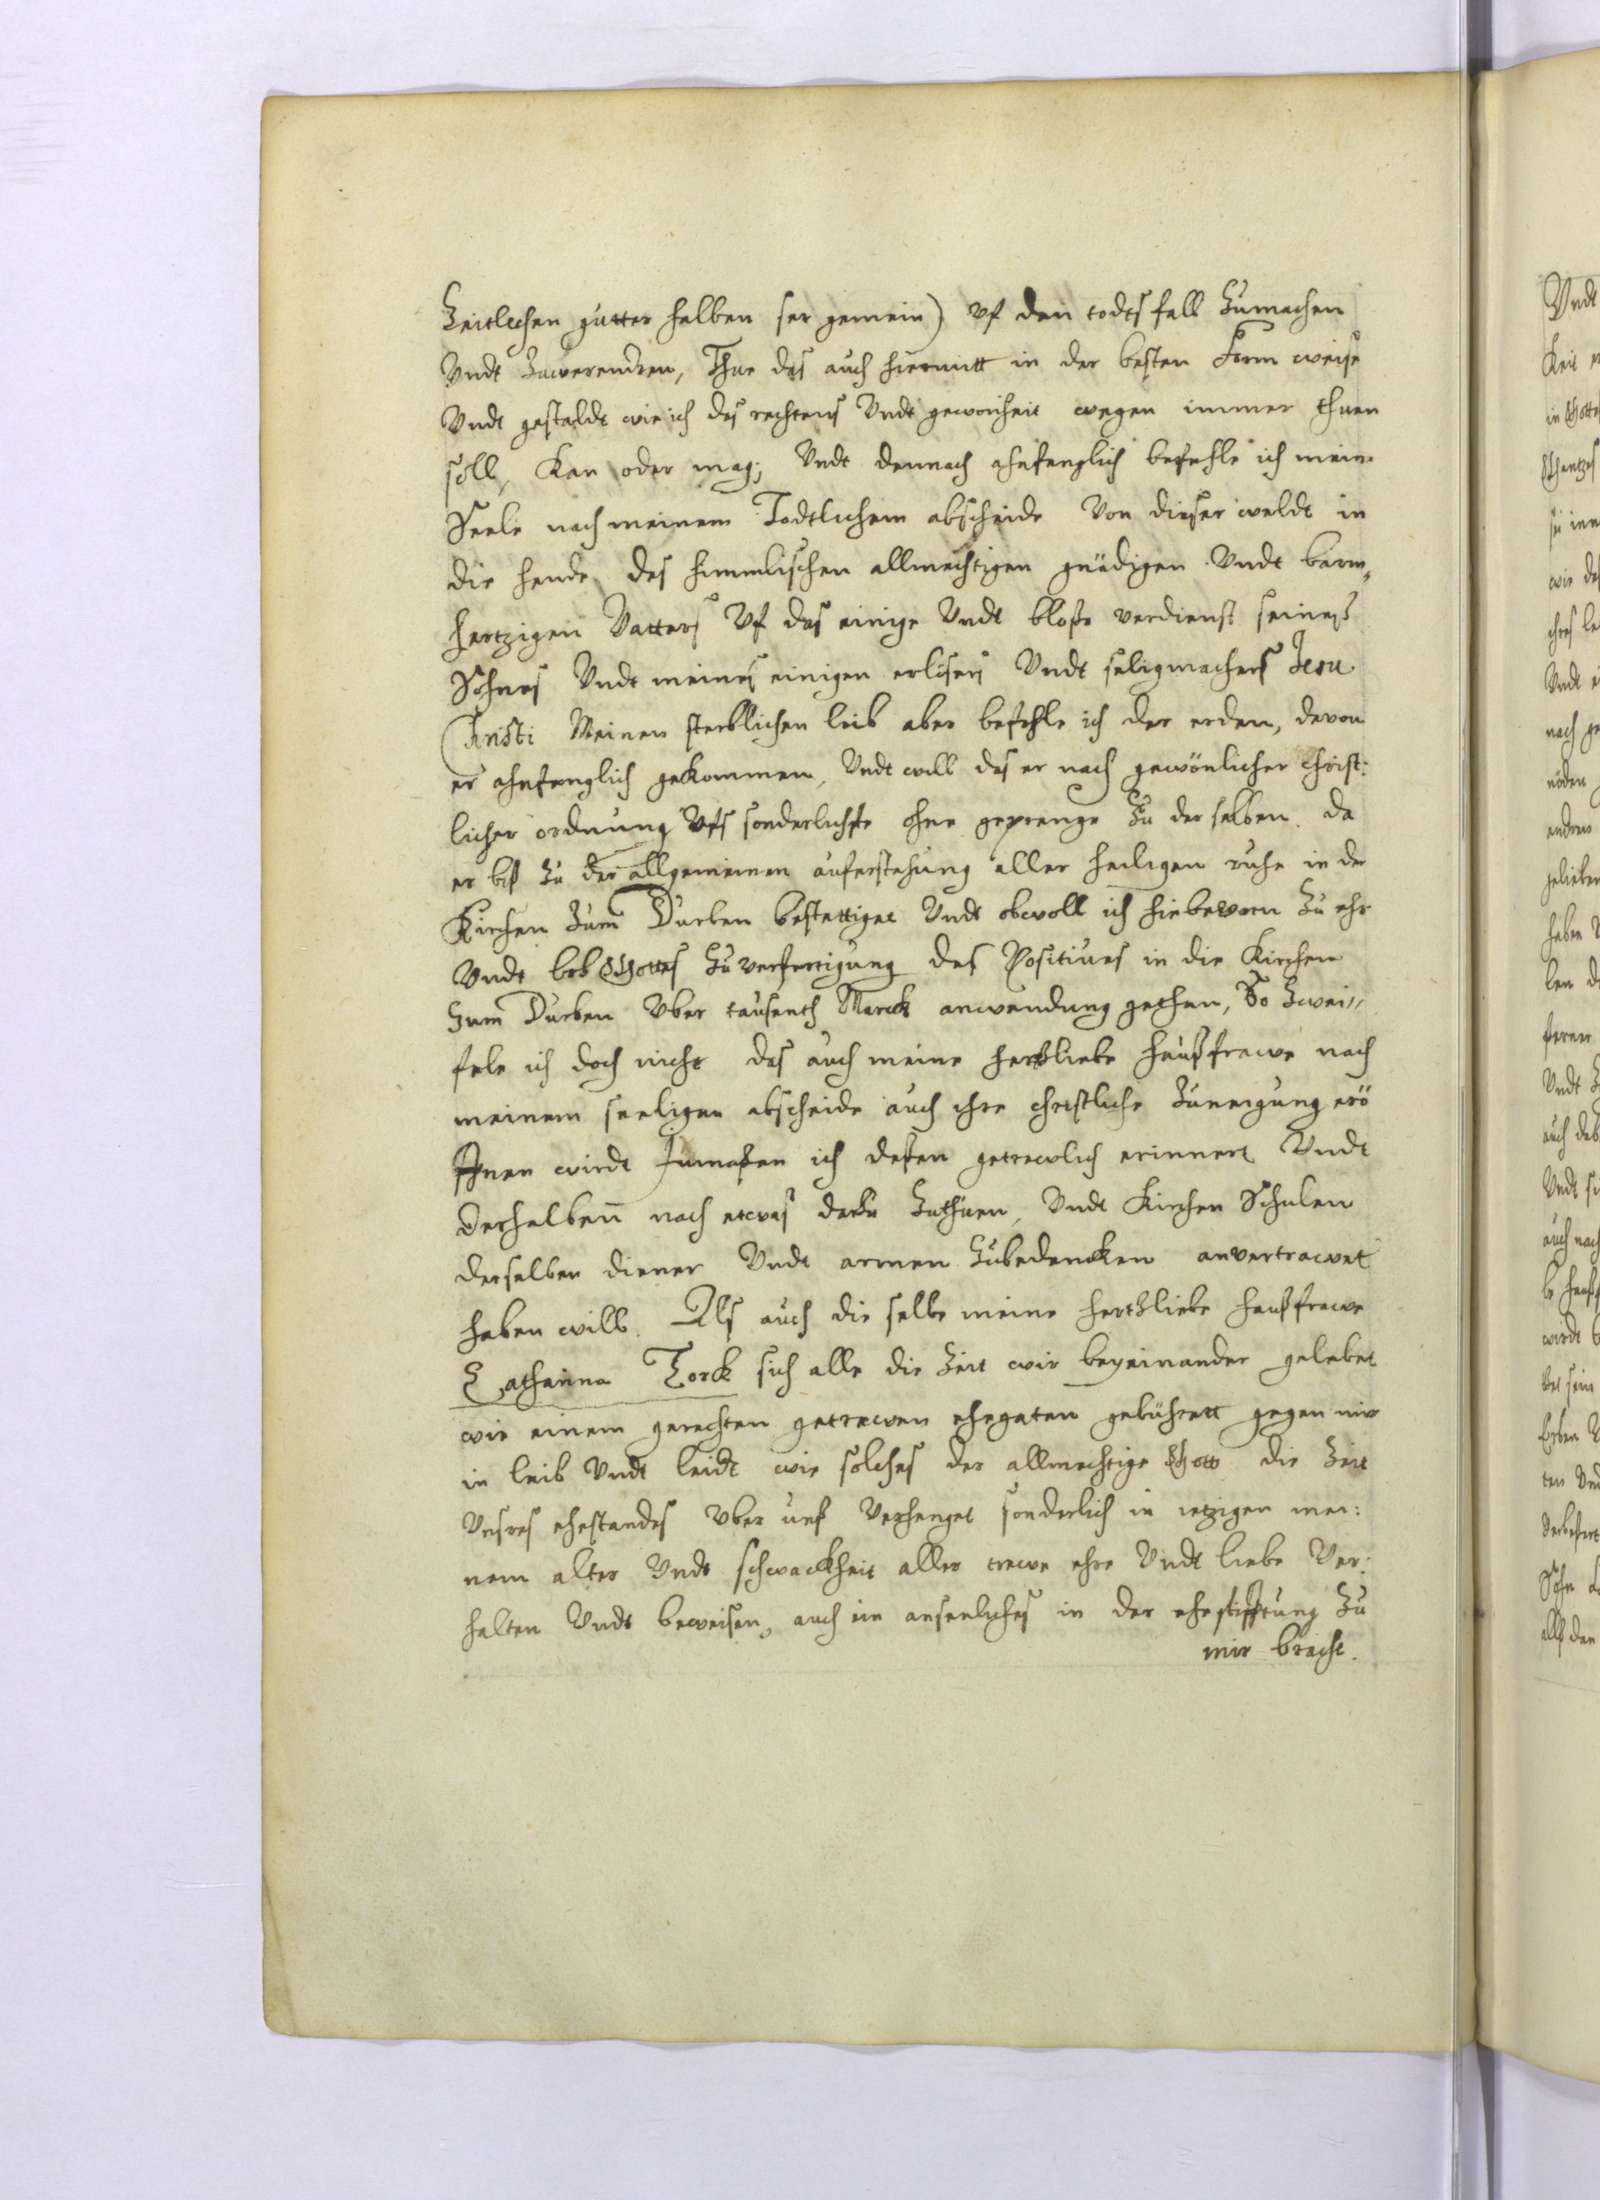 Zeitlichen gutter halben ser gemein) Uf den todtsfall Zumachen
Undt Zuverendren, Thue das auch hiermitt in der besten Form weise
Undt gestaldt wie ich des rechtens Undt gewonheit wegen immer thuen
soll, Kan oder mag; Undt dennach ahnfenglich befehle ich meine
Seele nach meinem Todtlichem abscheide Von dieser weldt in
die hende des himmlischen allmechtigen gnädigen Undt barm„
hertzigen Vatters Uf das einige Undt blosse verdienst seines
Sohnes Undt meines einigen erlösers Undt seligmachers Jesu
Christi Meinen sterblichen leib aber befehle ich der erden, davon
er ahnfenglich gekommen, Undt will das er nach gewönlicher Christ:
licher ordnung Ufs sonderlichste ohne geprenge Zu der selben. da
er biß Zu der allgemeinen auferstehung aller heiligen ruhe in der
Kirchen Zum Durben bestettiget Undt obwoll ich hiebevorn Zu ehr
Undt lob Gottes Zu verfertigung des Positives in die Kirchen
Zum Durben Uber tausent Marck anwendung gethan, So Zwei„
fele ich doch nicht das auch meine hertzliebe haußfrawe nach
meinem seeligen abscheide auch ihre christliche Zuneigung erö
ffnen wirdt Jnmaßen ich deßen getrewlich erinnert Undt
derhalben noch etwas darbe Zuthuen, Undt Kirchen Schulen
derselben diener Undt armen Zubedencken anvertrawet
haben will. Als auch die selbe meine hertzliebe haußfrawe
Catharina Torck sich alle die Zeit wir beyeinander gelebet
wie einem gerechten getrewen ehegaten gebührett gegen mir
in lieb Undt leidt wie solches der allmechtige Gott die Zeit
Unsres ehestandes Uber uns Verhenget sonderlich in ietzigen mei:
nem alter Undt schwackheit aller trewe ehre Undt liebe Ver:
halten Undt beweisen, auch ein ansenliches in der ehestifftung Zu
mir bracht.